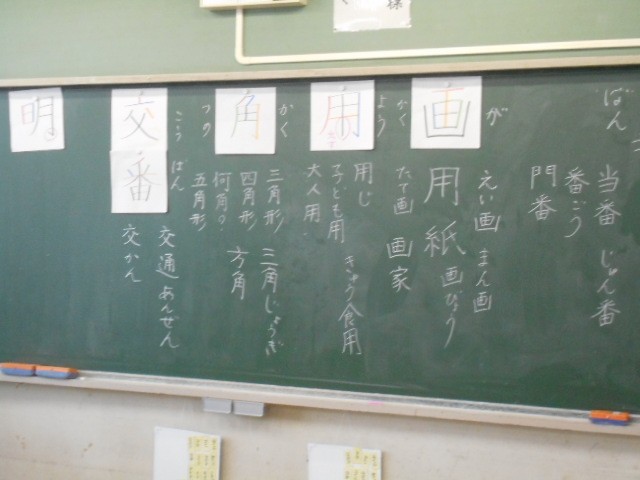 ばん
当番
じゅん番
番ごう
門番
画
が
かく
えい画
まん画
用紙
画びょう
たて画
画家
用
よう
用じ
子ども用
きゅう食用
大人用
角
かく
つの
三角形
三角じょうぎ
四角形
方角
何角?
五角形
交番
こう
ばん
交通あんぜん
交かん
明